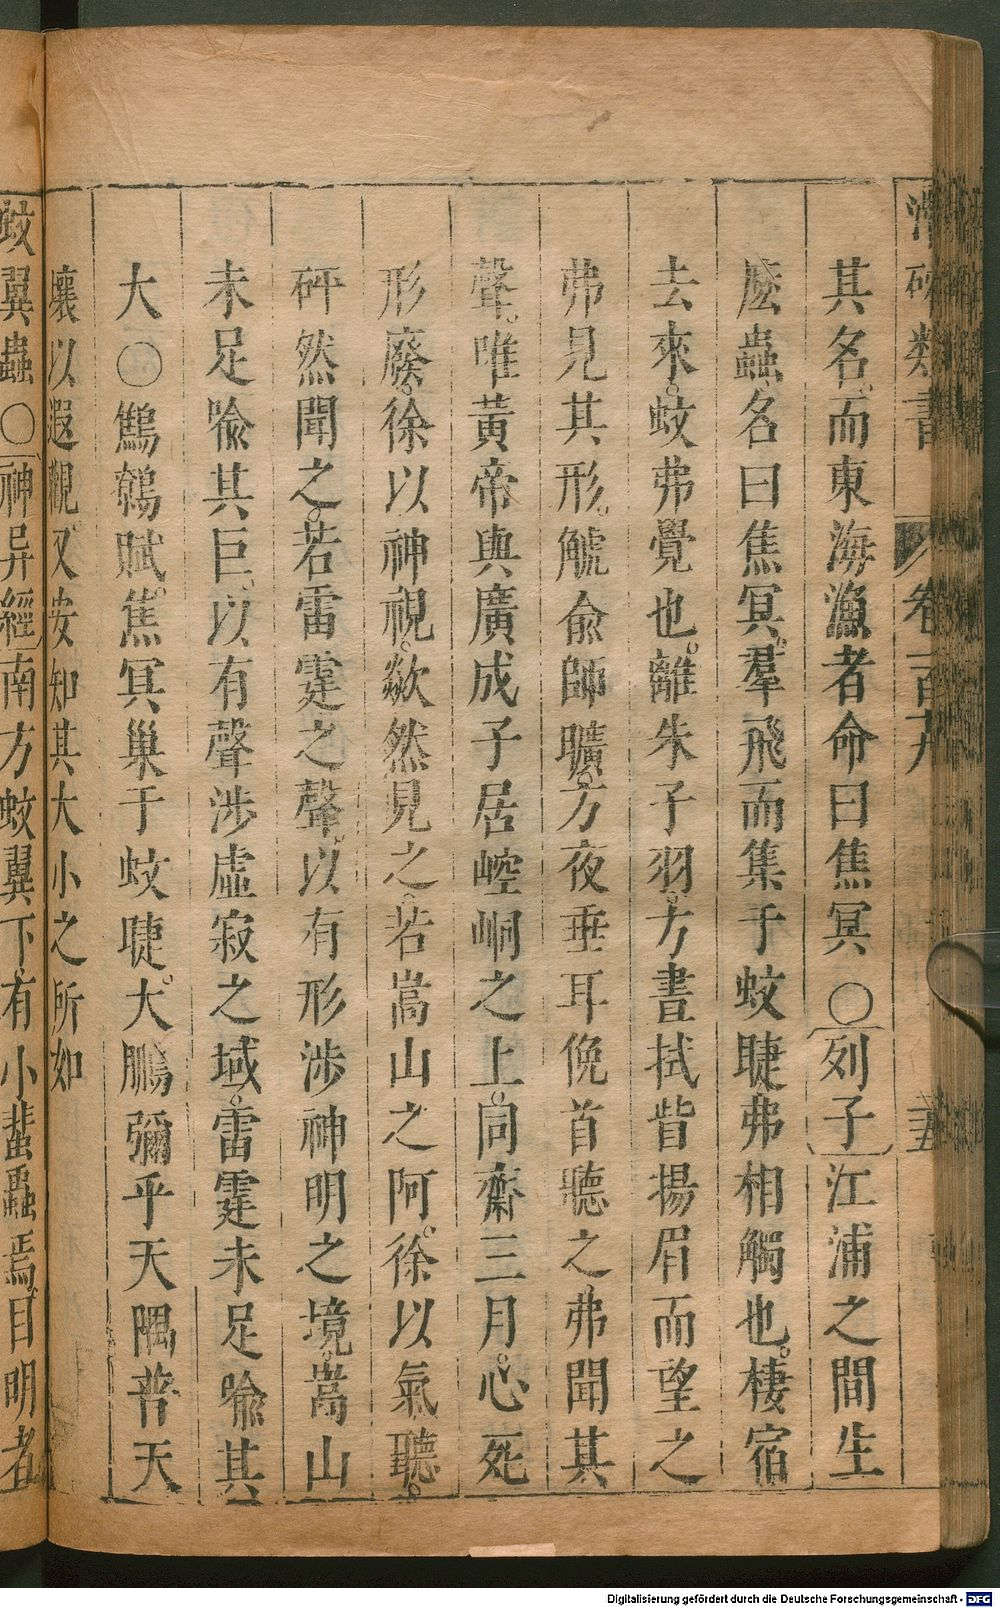 類書 卷一百九 五
其名而東海漁者命曰焦冥○列子江浦之間生
麽蟲名曰焦冥羣飛而集于蚊睫弗相觸也棲宿
去來蚊弗覺也離朱子羽方晝拭眥揚眉而望之
弗見其形䚦俞師曠方夜垂耳俛首聽之弗聞其
聲唯黃帝與廣成子居崆峒之上同齋三月心死
形廢徐以神視欻然見之若嵩山之阿徐以氣聽
砰然聞之若雷霆之聲以有形涉神明之境嵩山
未足喻其巨以有聲涉虛寂之域雷霆未足喻其
大○鷦鷯賦焦冥巢于蚊睫大鵬彌乎天隅普天
壤以遐觀又安知其大小之所如
蚊翼蟲○神异經南方蚊翼下有小蜚蟲焉目明者
Digitalisierung gefördert durch die Deutsche Forschungsgemeinschaft - DFG